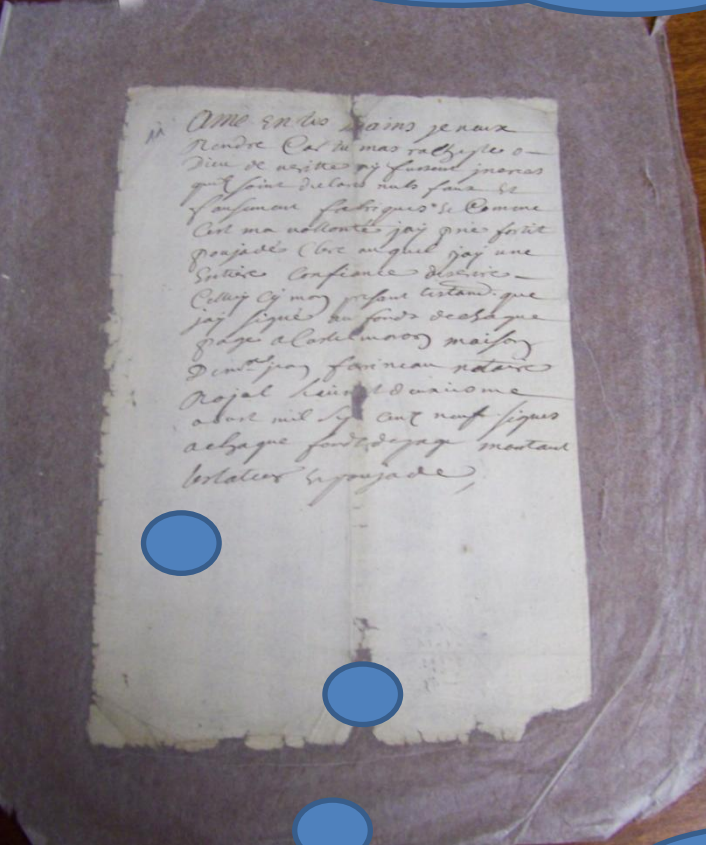 Ame en tes mains je veux
Rendre Car tu mas rachepte o
Dieu de veritte
quil soint declares nuls faux et
faussemant fabriques et Comme
Cest ma vollonté jay prie fortit
poujade Clerc auquel jay une
Entiere Confiance descrire
Celluy cy mon presant testamt que
jay signé au fonds de chaque
page a Castelmoron maison
De jean farineau notaire
Royal
aoust mil sept cent neuf signes
a chaque fonds de page
testateur poujade